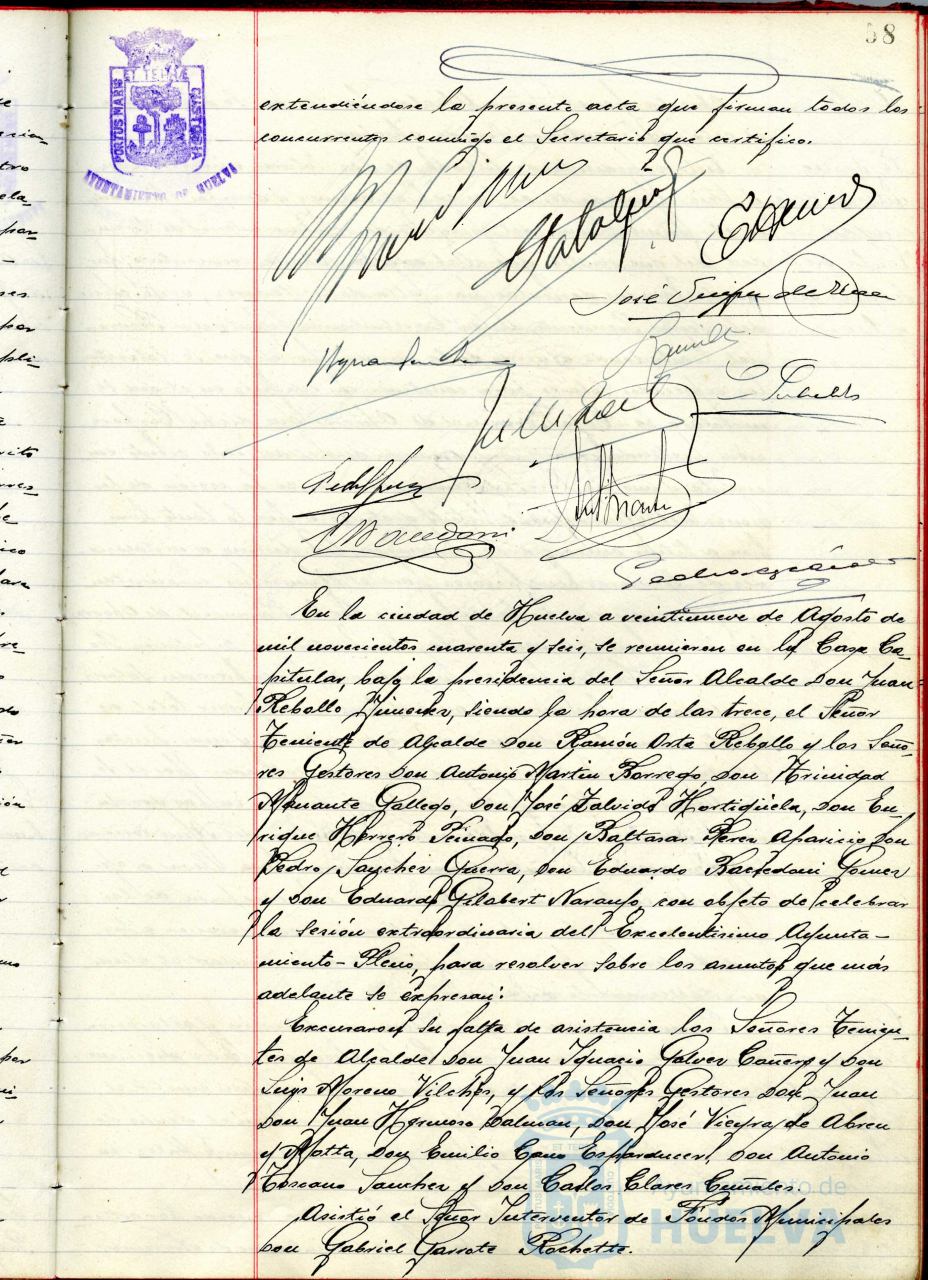 58
PORTUS MARIS ET TERRAE CUSTODIA
AYUNTAMIENTO DE HUELVA
extendiéndose la presente acta que firman todos los
concurrentes conmigo el Secretario que certifico.
En la ciudad de Huelva a veintinueve de Agosto de
mil novecientos cuarenta y seis, se reunieron en la Casa Ca-
pitular, bajo la presidencia del Señor Alcalde Don Juan
Rebollo Jimenez, siendo la hora de las trece, el Señor
Teniente de Alcalde Don Ramón Orta Rebollo y los Seño-
res Gestores Don Antonio Martin Borrego, Don Trinidad
Amante Gallego, Don José Zalvide Hortigüela, Don En-
rique Herrero Peinado, Don Baltasar Perez Aparicio, Don
Pedro Sanchez Guerra, Don Eduardo Gomez
y Don Eduardo Gilabert Naranjo, con objeto de celebrar
la sesión extraordinaria del Excelentisimo Ayunta-
miento-Pleno, para resolver sobre los asuntos que más
adelante se expresan:
Excusaron su falta de asistencia los Señores Tenien-
tes de Alcalde Don Juan Ignacio Galvez Cañero y Don
Luis Moreno Vilches, y los Señores Gestores Don Juan
Don Juan Hermoso Dalmau, Don José Vieyra de Abreu
y Motta, Don Emilio Cano Don Antonio
Toscano Sanchez y Don Carlos Clares Cuñales.
Asistió el Señor Interventor de Fondos Municipales
Don Gabriel Garrote Rochette.
Ayuntamiento de
HUELVA